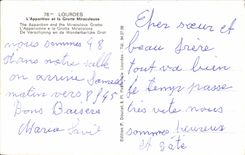 78 LOURDES
L'Apparition et la Grotte Miraculeuse
The Apparition and the Miraculous Grotto
L'Apparizione e la Grotta Miracolosa
De Verschijning en de Wonderbarlijke Grot
nous sommes 48
dans notre salle
on arrive Samedi
matin vers 8 h 45
Bons Baisers
Maria
Cher sœur et
beau frère
tout va bien
le temps passe
très vite nous
sommes heureux
et gâté